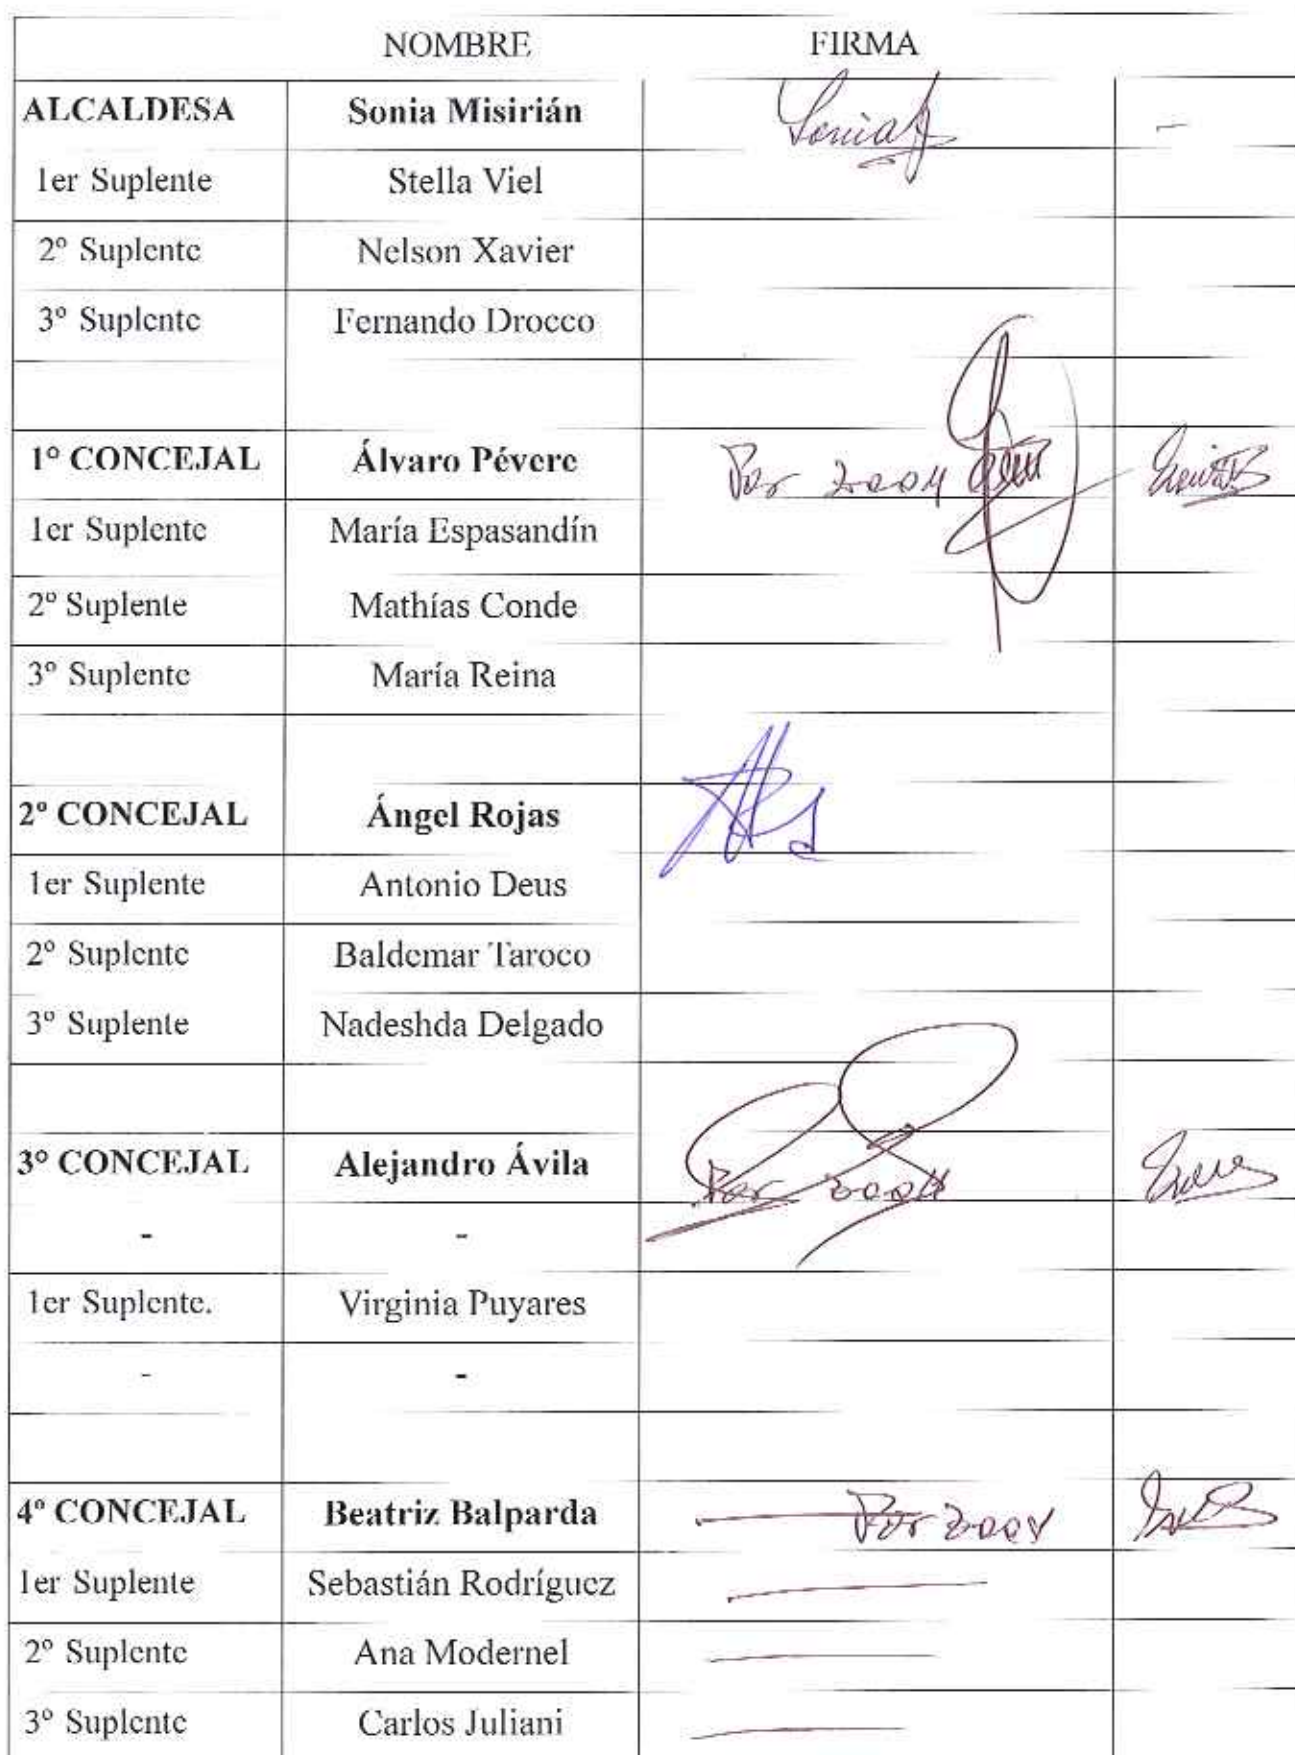 NOMBRE FIRMA
ALCALDESA Sonia Misirián
1er Suplente Stella Viel
2º Suplente Nelson Xavier
3º Suplente Fernando Drocco
1º CONCEJAL Álvaro Pévere Por zoom
1er Suplente María Espasandín
2º Suplente Mathías Conde
3º Suplente María Reina
2º CONCEJAL Ángel Rojas
1er Suplente Antonio Deus
2º Suplente Baldemar Taroco
3º Suplente Nadeshda Delgado
3º CONCEJAL Alejandro Ávila Por zoom
- -
1er Suplente. Virginia Puyares
- -
4º CONCEJAL Beatriz Balparda Por zoom
1er Suplente Sebastián Rodríguez
2º Suplente Ana Modernel
3º Suplente Carlos Juliani